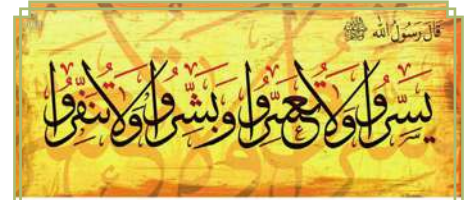 قَالَ رَسُولُ الله ﷺ
يَسِّرُوا وَلَا تُعَسِّرُوا وَبَشِّرُوا وَلَا تُنَفِّرُوا